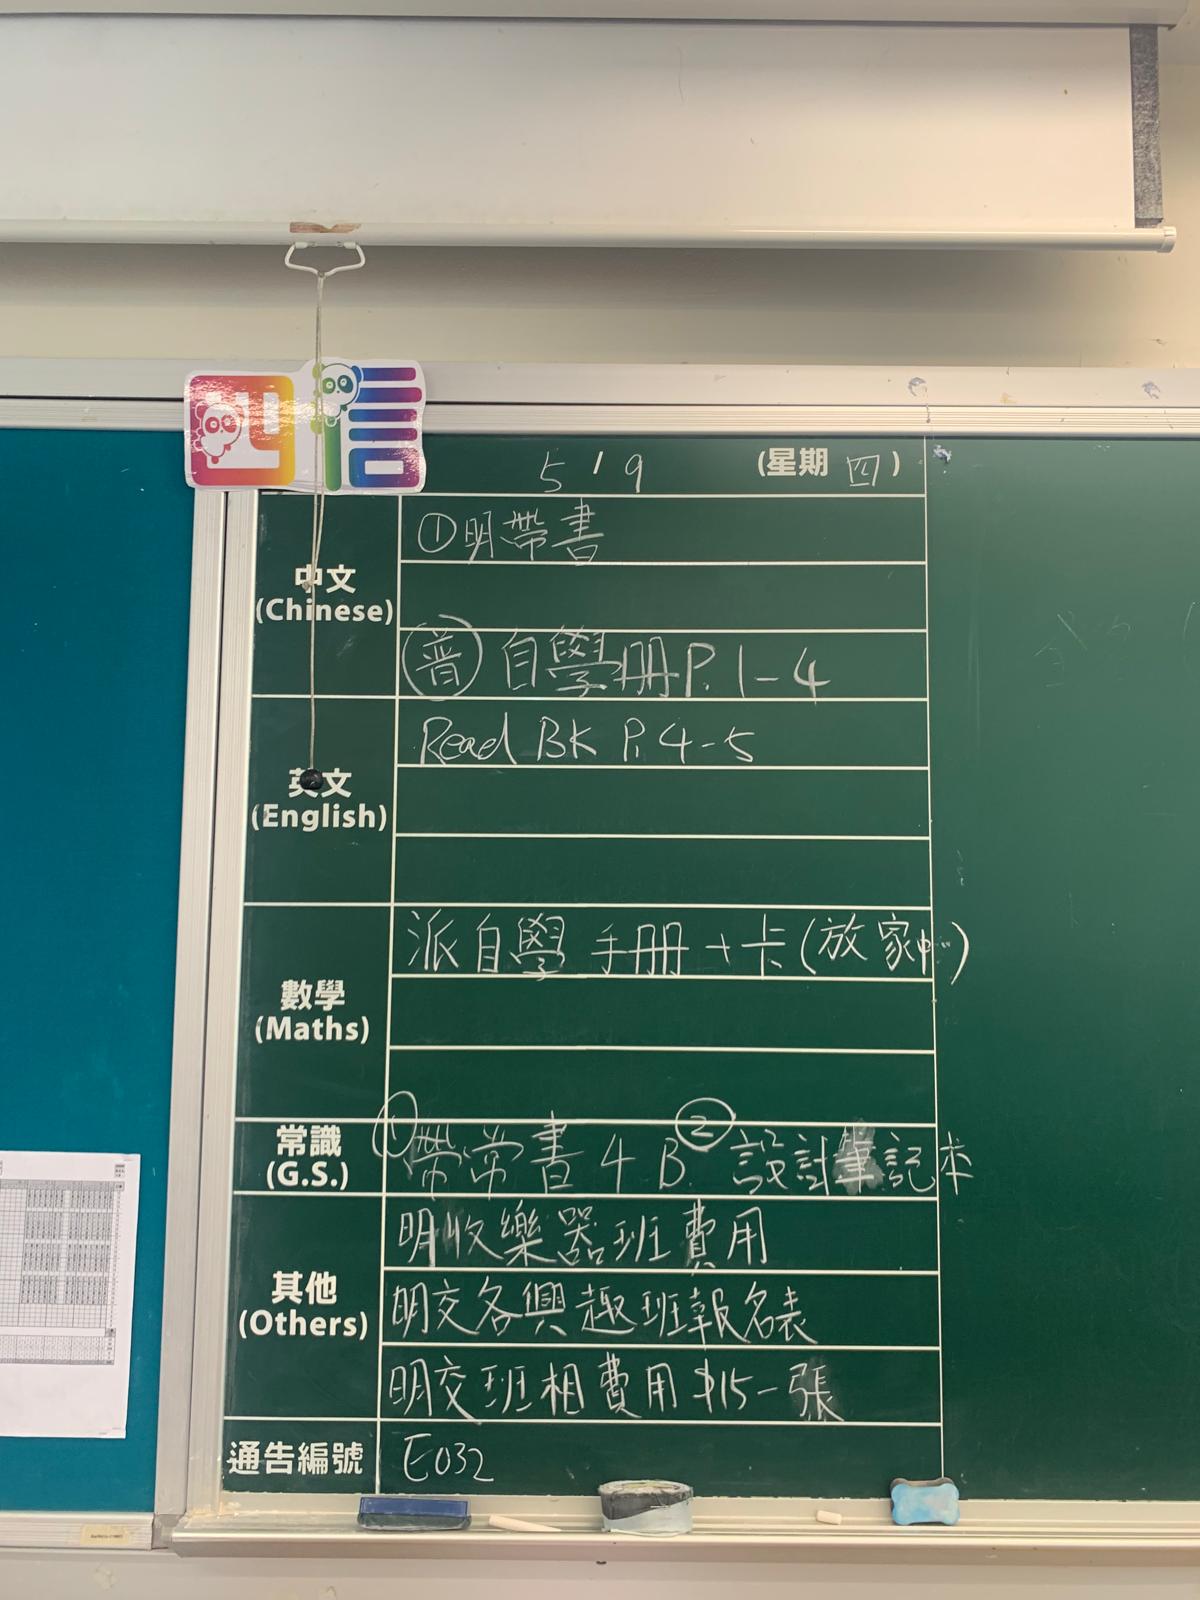 四信
5 / 9 (星期 四)
中文
(Chinese)
①明帶書
普 自學册P.1-4
英文
(English)
Read BK P.4-5
數學
(Maths)
派自學 手册 + 卡(放家中)
常識
(G.S.)
① 帶常書 4B ② 設計筆記本
其他
(Others)
明收樂器班費用
明交各興趣班報名表
明交班相費用 $15一張
通告編號
E032